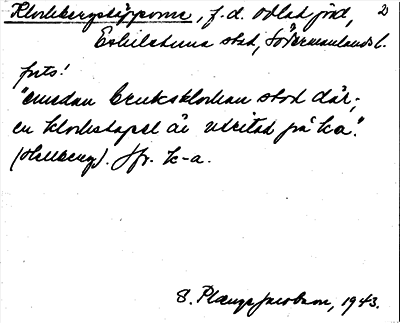 Klockbergstäpporna, f.d. odlad jord, 2
Eskilstuna stad, Södermanlands l.
forts!
"emedan bruksklockan stod där;
en klockstapel är utritad på ka."
(Hellberg). Jfr. k-a.
S. Plænge Jacobson, 1943.